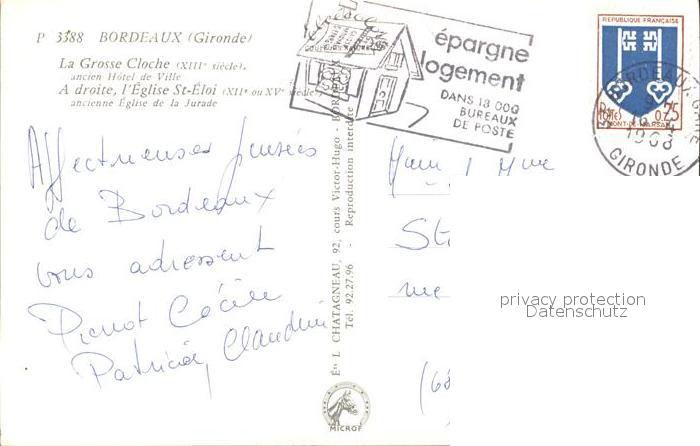 P 3388 BORDEAUX (Gironde)
La Grosse Cloche (XIIIe siècle).
ancien Hôtel de Ville
A droite, l'Église St-Éloi (XIIe ou XVe siècle)
ancienne Église de la Jurade
épargne
logement
DANS 18 000
BUREAUX
DE POSTE
REPUBLIQUE FRANÇAISE
Postes 0,25
MONT-DE-MARSAN
BORDEAUX
1968
GIRONDE
Affectueuses pensées
de Bordeaux
vous adressent
Pierrot Cécile
Patricia, Claudine
Édit. CHATAGNEAU, 92, cours Victor-Hugo - BORDEAUX
Tél. 92.27.96 - Reproduction interdite
MICROF
Mme
St
me
(68
privacy protection
Datenschutz